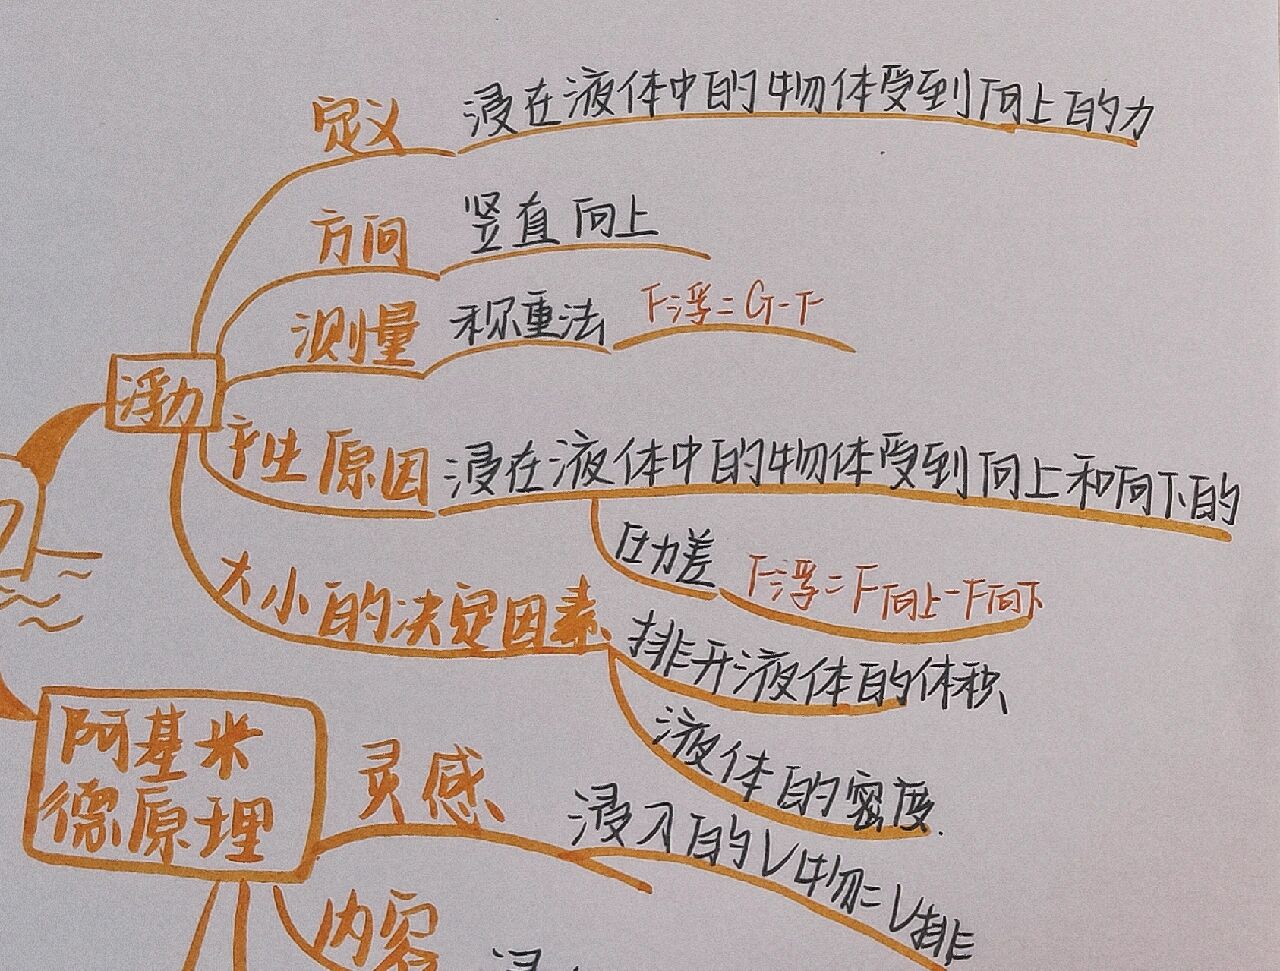 定义 浸在液体中的物体受到向上的力
方向 竖直向上
测量 称重法 F浮=G-F
浮力
产生原因 浸在液体中的物体受到向上和向下的
压力差 F浮=F向上-F向下
大小的决定因素
排开液体的体积
液体的密度
阿基米
德原理
灵感
浸入的V物=V排
内容